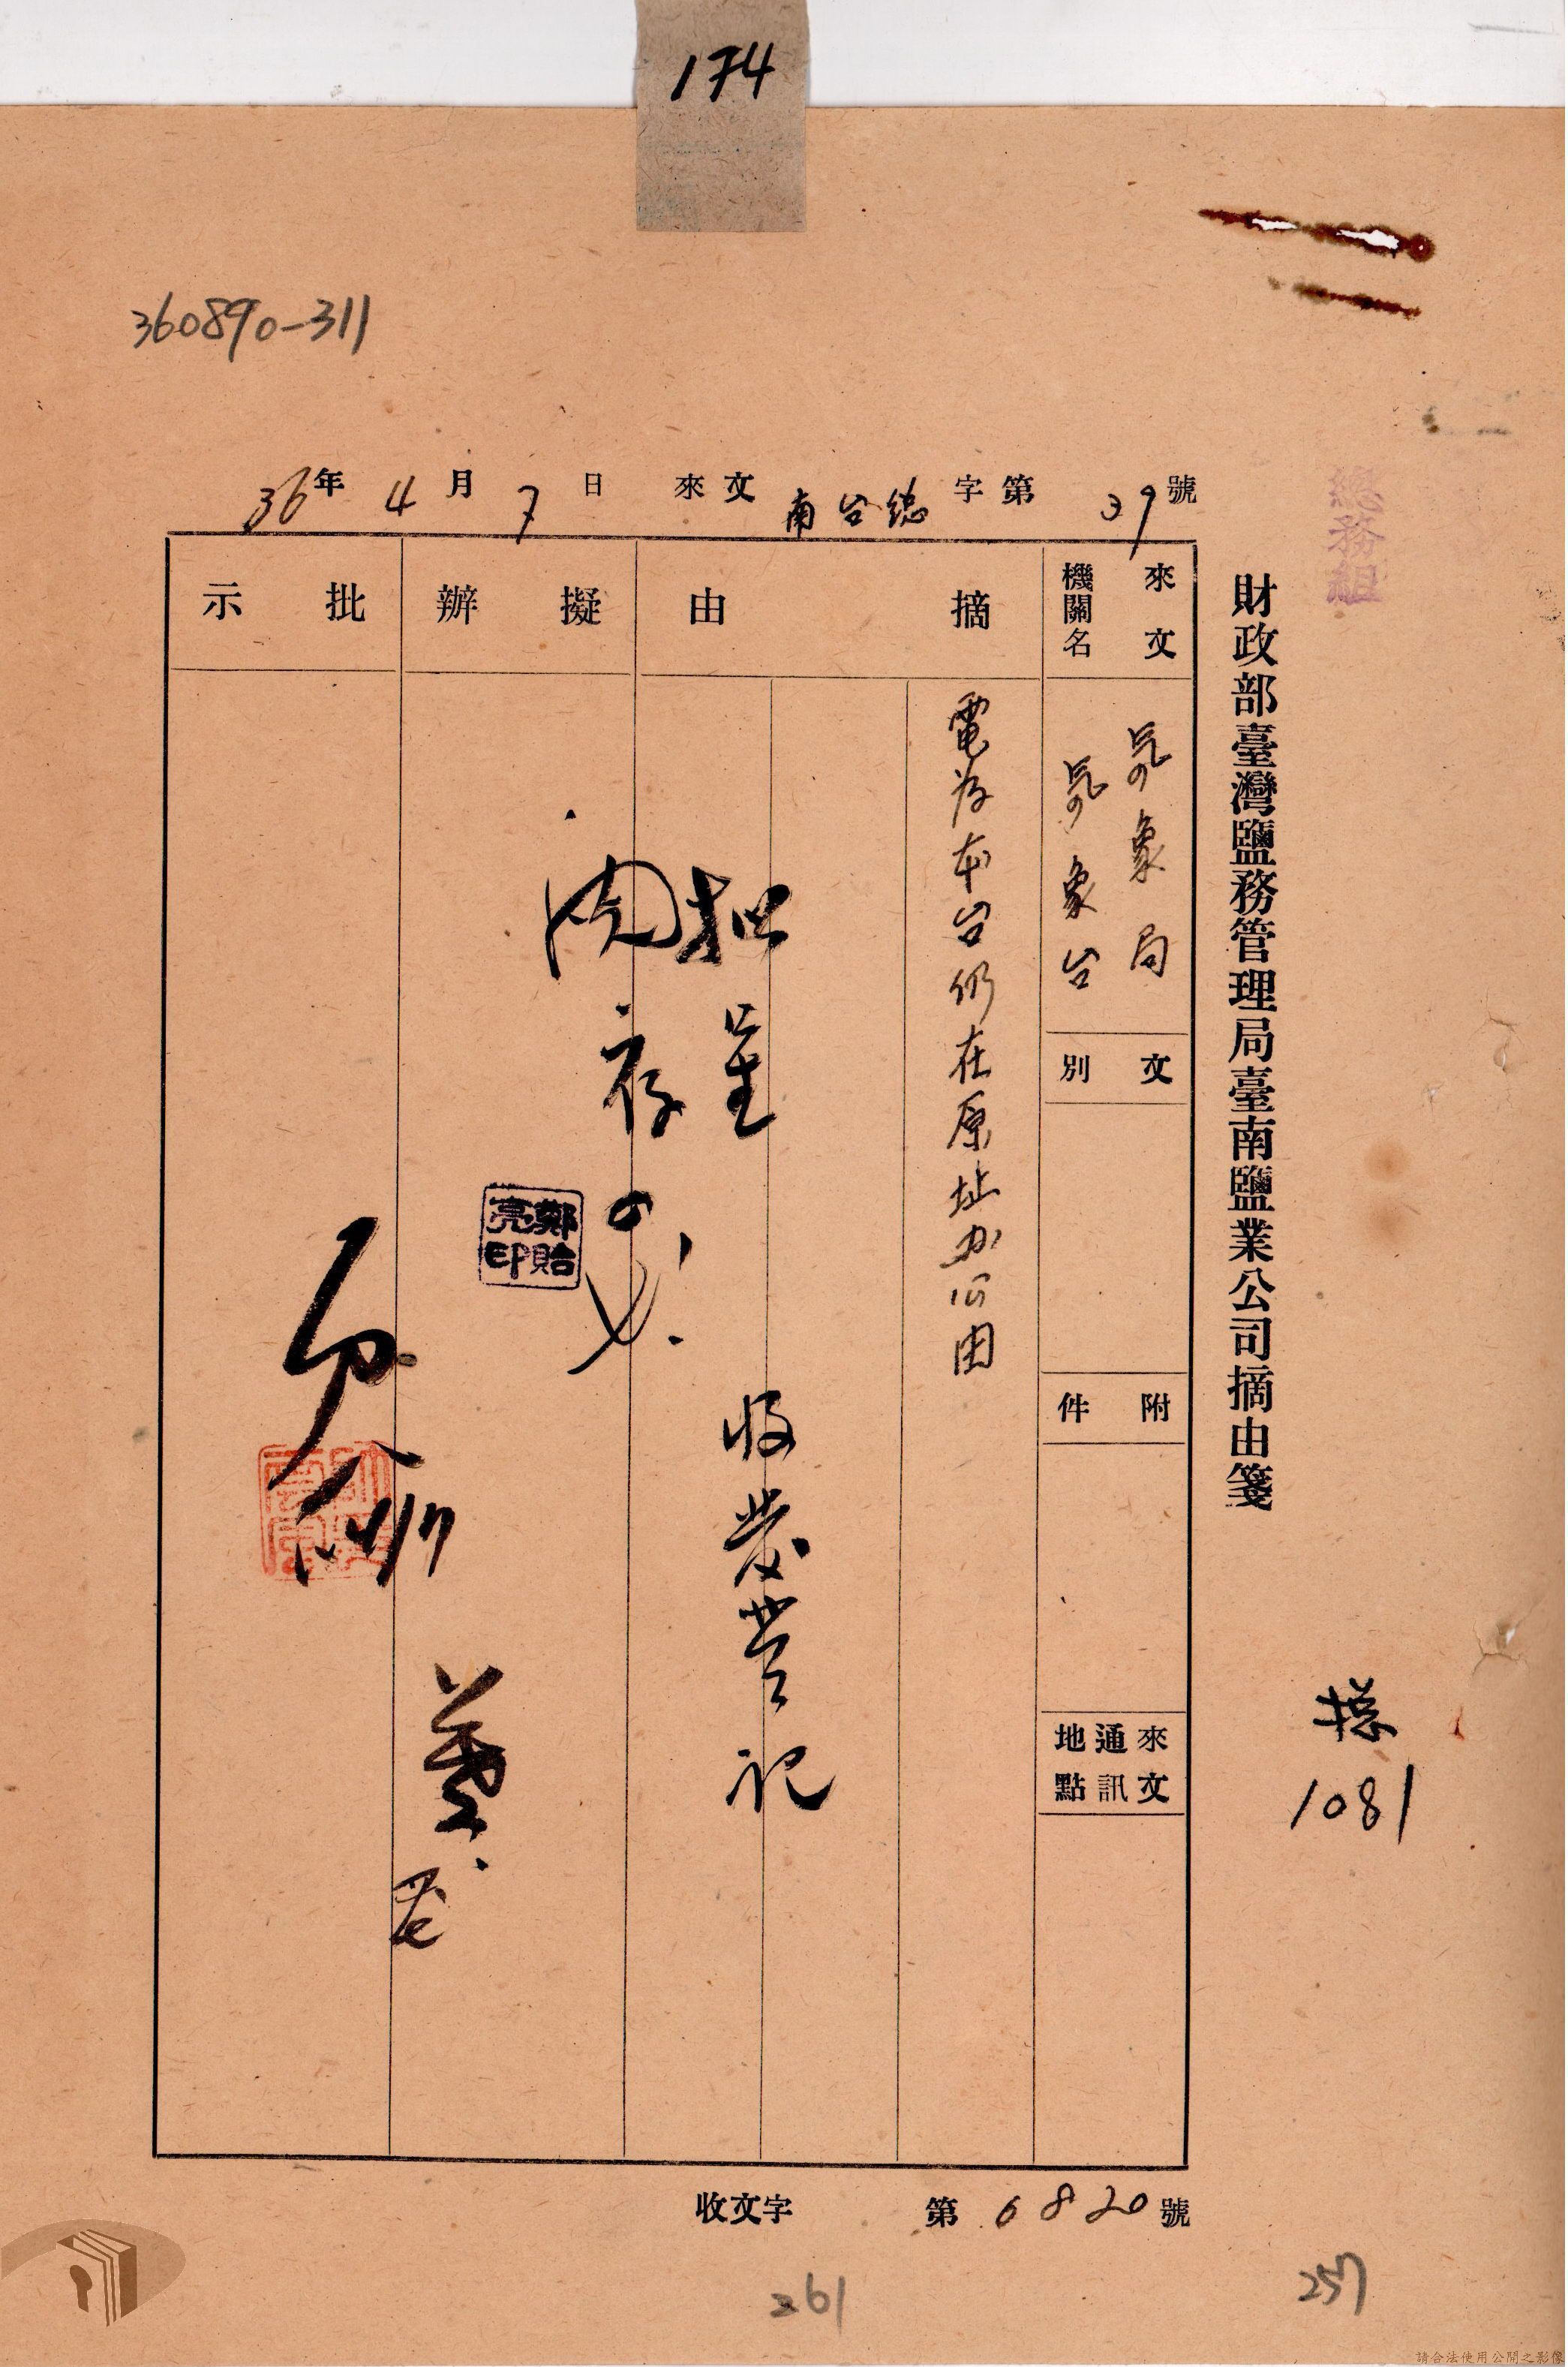 174
360890-311
總務組
財政部臺灣鹽務管理局臺南鹽業公司摘由箋
1081
36年4月7日 來文 南台總字第39號
來文機關名
氣象局
氣象台
文別
附件
來文通訊地點
摘由
電为本台仍在原址办公由
擬辦
拟呈
閱存
收發萱記
鄭貽亮印
批示
收文字 第6820號
261
257
請合法使用公開之影像